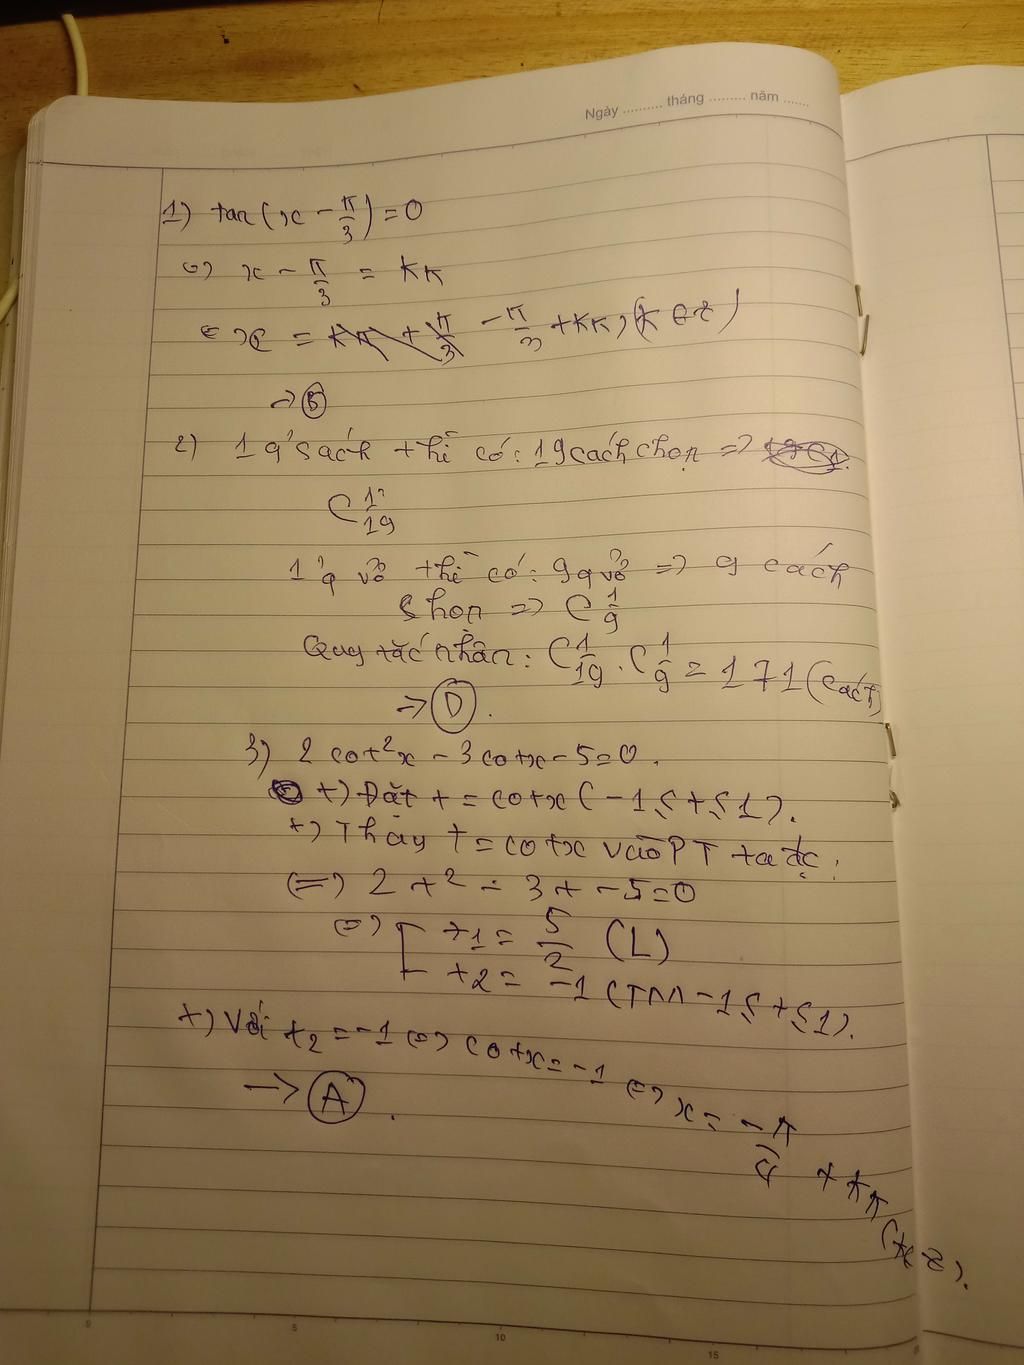 Ngày .......... tháng ......... năm .......
1) tan(x - π/3) = 0
<=> x - π/3 = kπ
<=> x = - π/3 + kπ, (k ∈ Z)
=> B
2) 1 q' sách thì có: 19 cách chọn =>
C 1 19
1 q vở thì có: 9 q vở => 9 cách
chọn => C 1 9
Quy tắc nhân: C 1 19 . C 1 9 = 171 (cách)
=> D.
3) 2 cot²x - 3cotx - 5 = 0.
+) Đặt t = cotx (-1 ≤ t ≤ 1).
+) Thay t = cotx vào PT ta đc:
<=> 2t² - 3t - 5 = 0
<=> [ t1 = 5/2 (L)
t2 = -1 (TM -1 ≤ t ≤ 1).
+) Với t2 = -1 <=> cotx = -1 <=> x = -π/4 + kπ (k∈Z).
-> A.
0 5 10 15